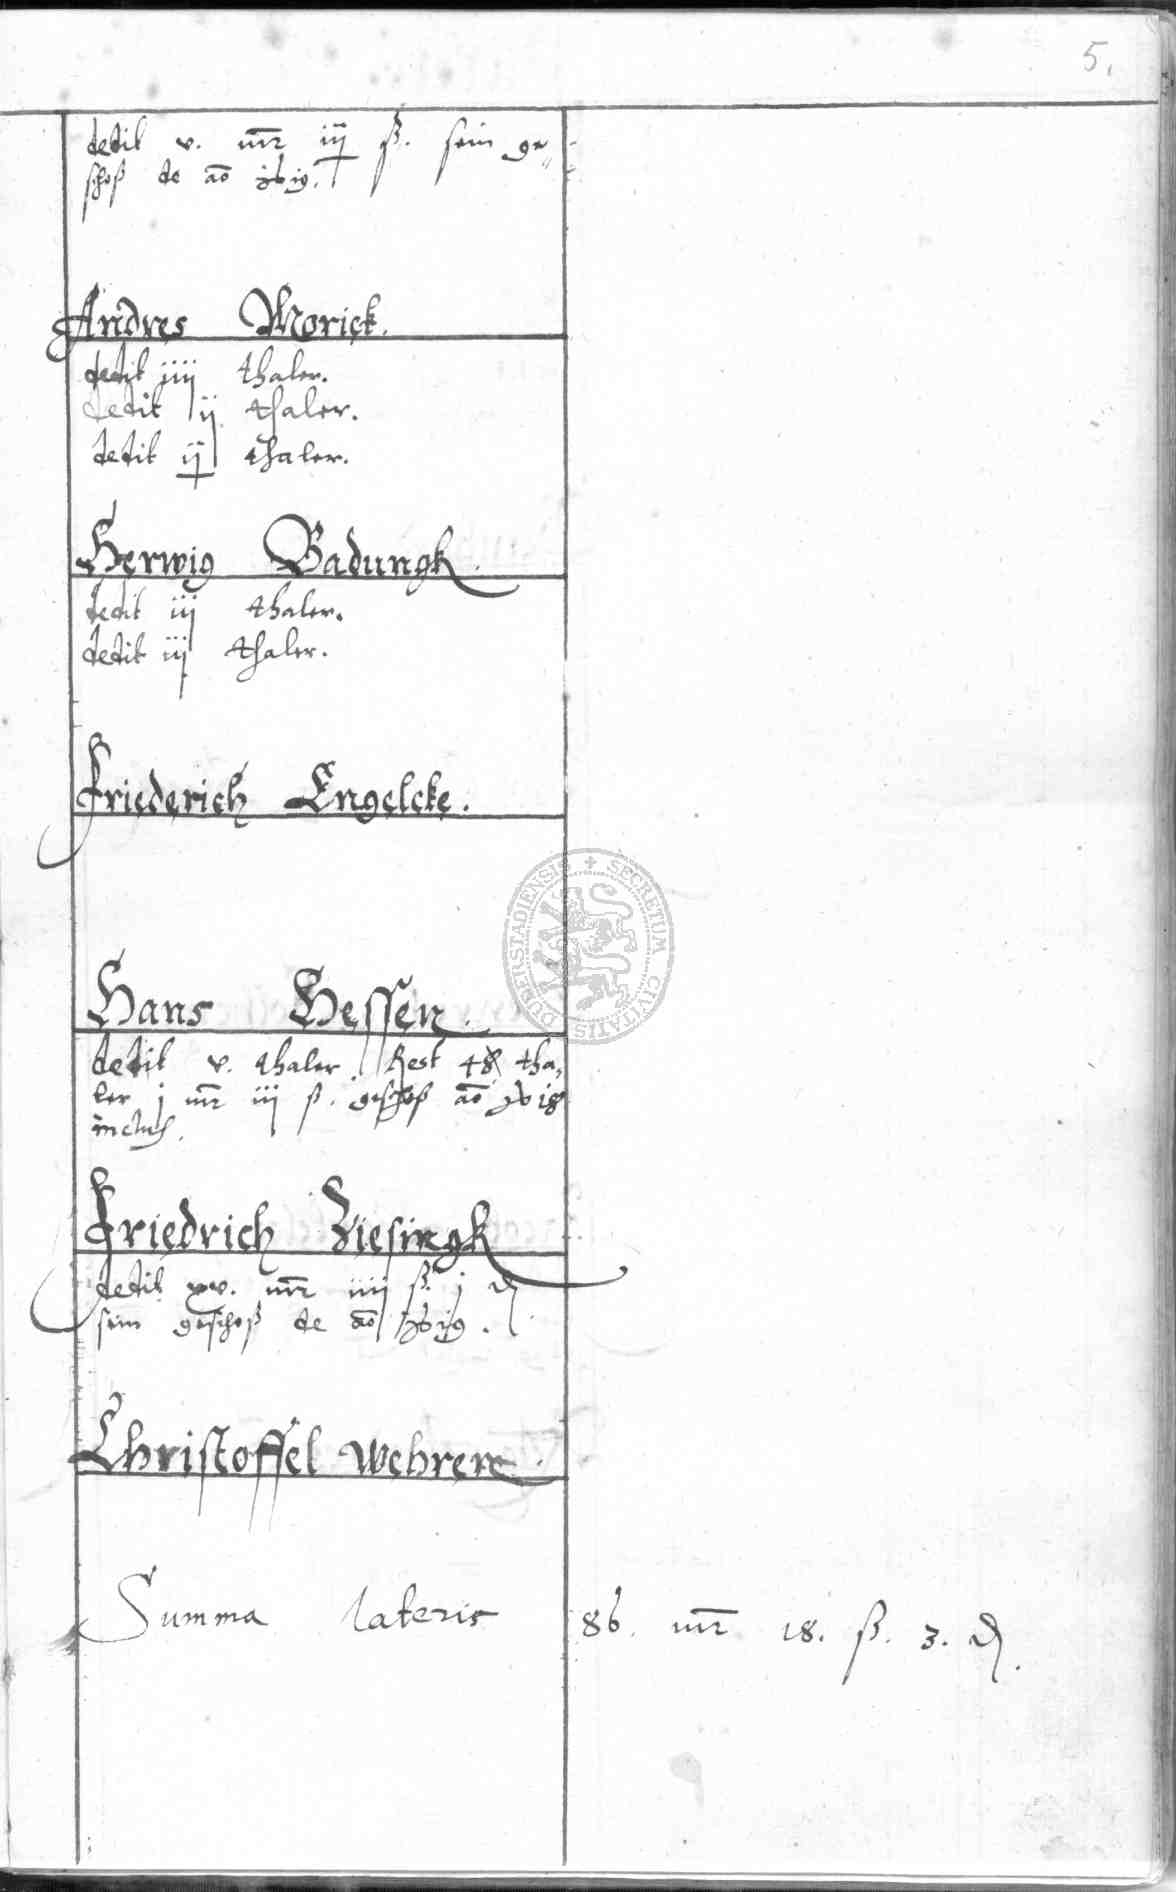 5.
dedit v. mr iij ß. sein ge-
schoß de ao
Andres Morick.
dedit iiij thaler.
dedit ij thaler.
dedit ij thaler.
Herwig Badungk.
dedit iij thaler.
dedit iij thaler.
Friederich Engelcke.
Hans Hessen.
dedit v. thaler Rest 48 tha-
ler j mr iij ß. geschoß ao
Friedrich Ziesingk
dedit xv. mr iiij ß. j ₰
sein geschoß de ao
Christoffel Wehrere.
Summa lateris 86. mr 18. ß. 3. ₰.
SECRETUM CIVITATIS DUDERSTADIENSIS